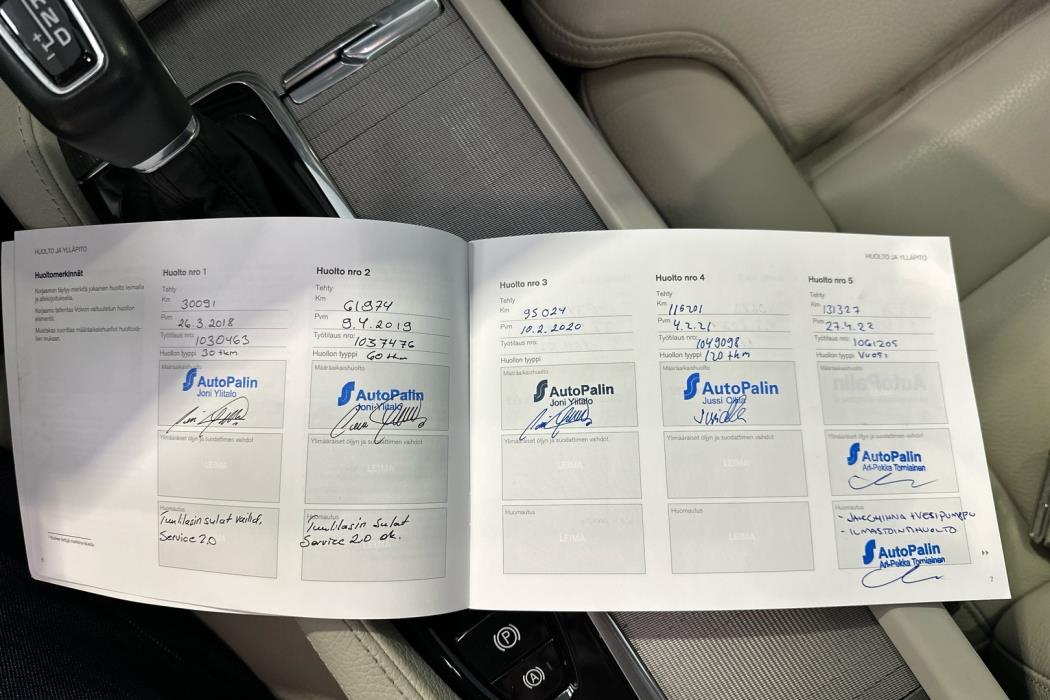 R
N
D
+
-
HUOLTO JA YLLÄPITO
Huoltomerkinnät
Korjaamon täytyy merkitä jokainen huolto leimalla
ja allekirjoituksella.
Huolto nro 1
Tehty
Km 30091
Pvm 26.3.2018
Työtilaus nro: 1030463
Huollon tyyppi 30 tkm
Määräaikaishuolto
AutoPalin
Joni Ylitalo
Ylimääräiset öljyn ja suodattimen vaihdot
LEIMA
Huomautus
Service 2.0
Huolto nro 2
Tehty
Km 61974
Pvm 9.4.2019
Työtilaus nro: 1037476
Huollon tyyppi 60 tkm
Määräaikaishuolto
AutoPalin
Joni Ylitalo
Ylimääräiset öljyn ja suodattimen vaihdot
LEIMA
Huomautus
Tuulilasin sulat
Service 2.0 ok.
LEIMA
Huolto nro 3
Tehty
Km 95024
Pvm 10.2.2020
Työtilaus nro:
Huollon tyyppi
Määräaikaishuolto
AutoPalin
Joni Ylitalo
Ylimääräiset öljyn ja suodattimen vaihdot
LEIMA
Huomautus
LEIMA
Huolto nro 4
Tehty
Km 115201
Pvm 4.2.21
Työtilaus nro: 1049098
Huollon tyyppi 120 tkm
Määräaikaishuolto
AutoPalin
Jussi
Ylimääräiset öljyn ja suodattimen vaihdot
LEIMA
Huomautus
LEIMA
HUOLTO JA YLLÄPITO
Huolto nro 5
Tehty
Km 131327
Pvm 27.4.22
Työtilaus nro: 1061205
Huollon tyyppi Vuosi
Määräaikaishuolto
Ylimääräiset öljyn ja suodattimen vaihdot
AutoPalin
Ari-Pekka Torniainen
Huomautus
- JAKOHIHNA + VESIPUMPPU
- ILMASTOINTIHUOLTO
AutoPalin
Ari-Pekka Torniainen
7
P
A